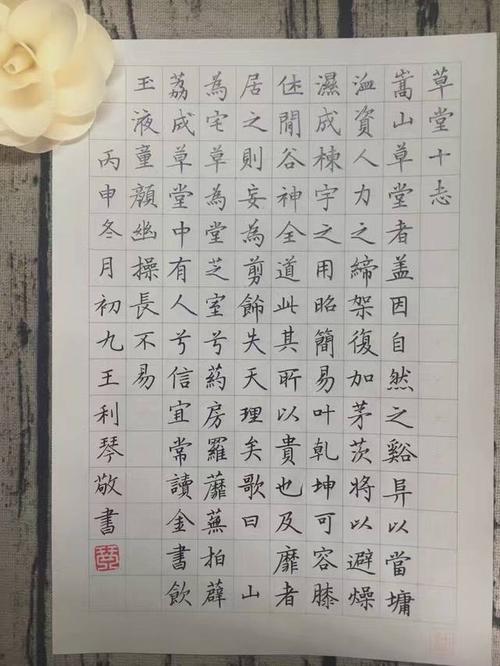 草堂十志
嵩山草堂者盖因自然之谿异以當墉
洫資人力之締架復加茅茨將以避燥
濕成棟宇之用昭簡易叶乾坤可容膝
休閒谷神全道此其所以貴也及靡者
居之則妄為剪飾失天理矣歌曰 山
為宅草為堂芝室兮葯房羅蘼蕪拍薜
荔成草堂中有人兮信宜常讀金書飲
玉液童顔幽操長不易
丙申冬月初九王利琴敬書